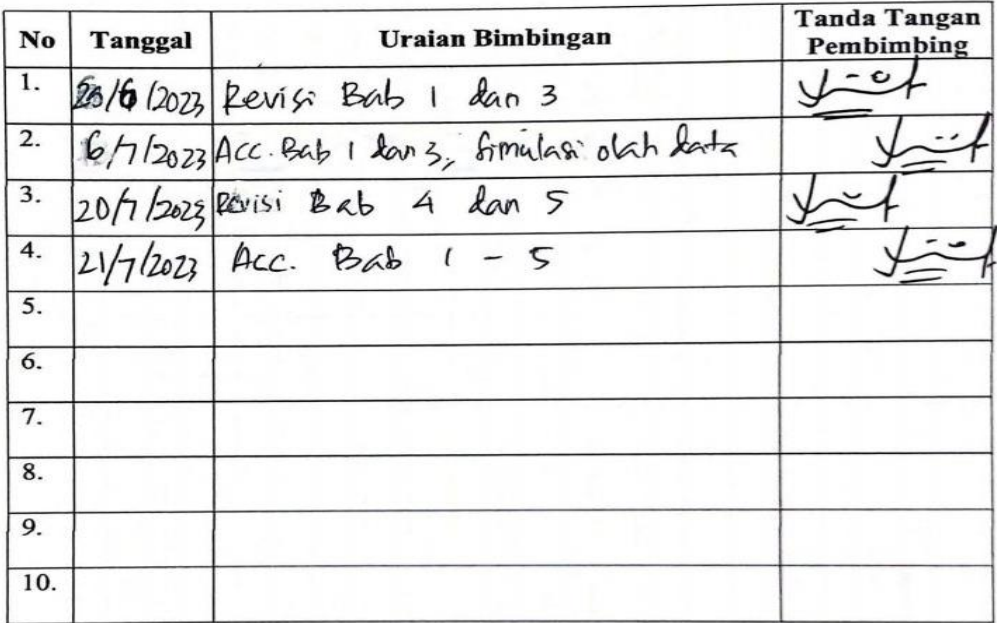 No Tanggal Uraian Bimbingan Tanda Tangan Pembimbing
1. /6/2023 Revisi Bab 1 dan 3
2. 6/7/2023 Acc. Bab 1 dan 3, Simulasi olah data
3. 20/7/2023 Revisi Bab 4 dan 5
4. 21/7/2023 Acc. Bab 1 - 5
5.
6.
7.
8.
9.
10.